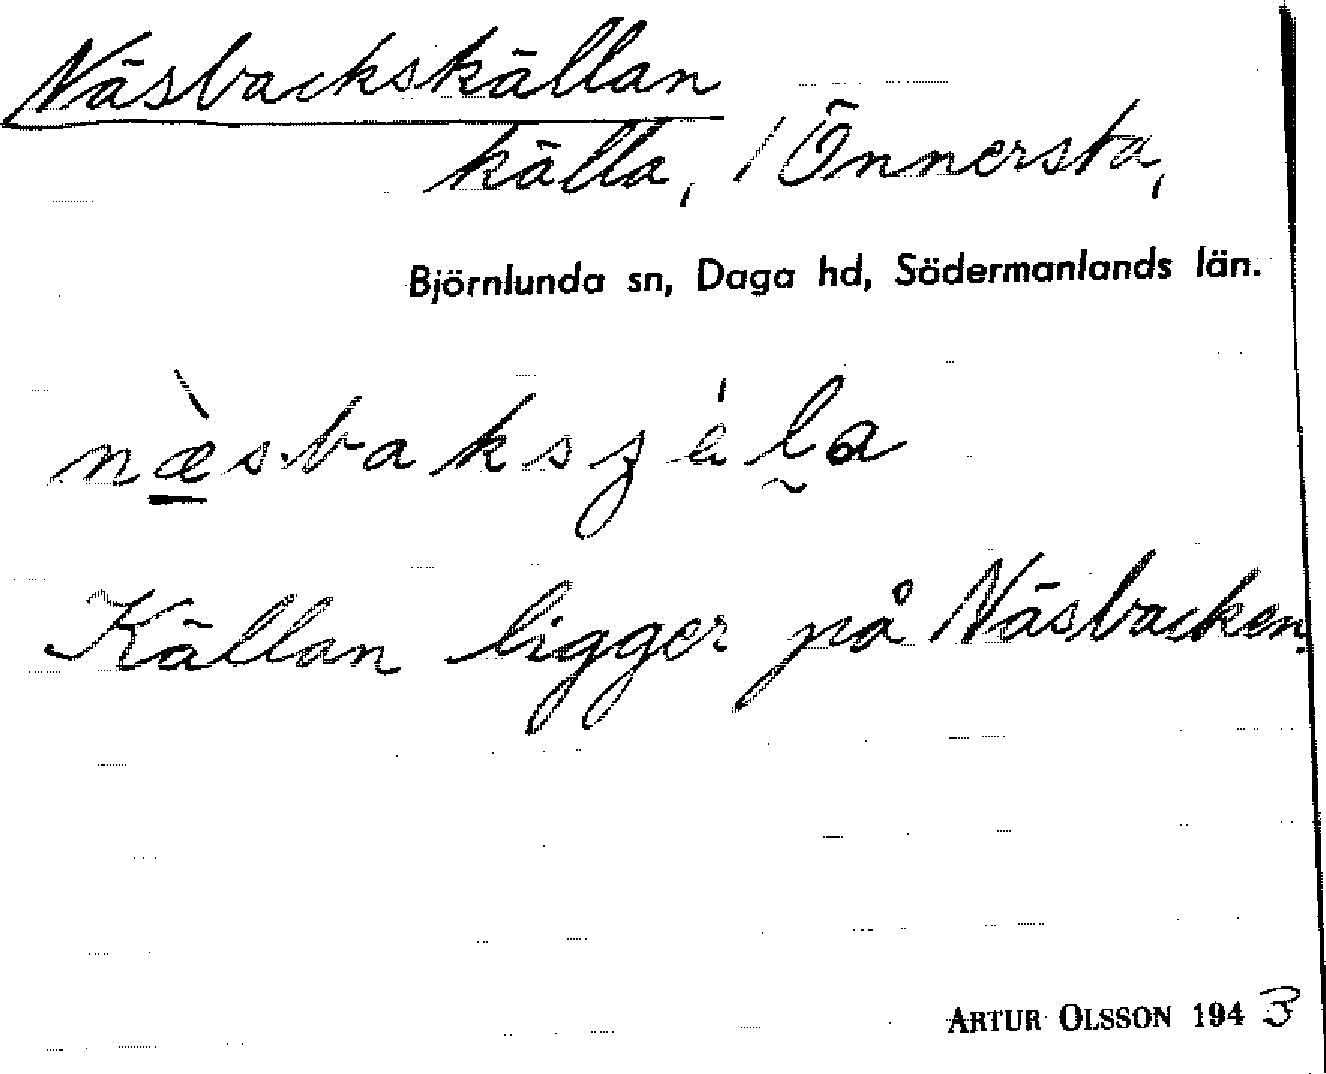 Näsbackskällan
källa, / Önnersta,
Björnlunda sn, Daga hd, Södermanlands län.
Källan ligger på Näsbacken.
ARTUR OLSSON 1943